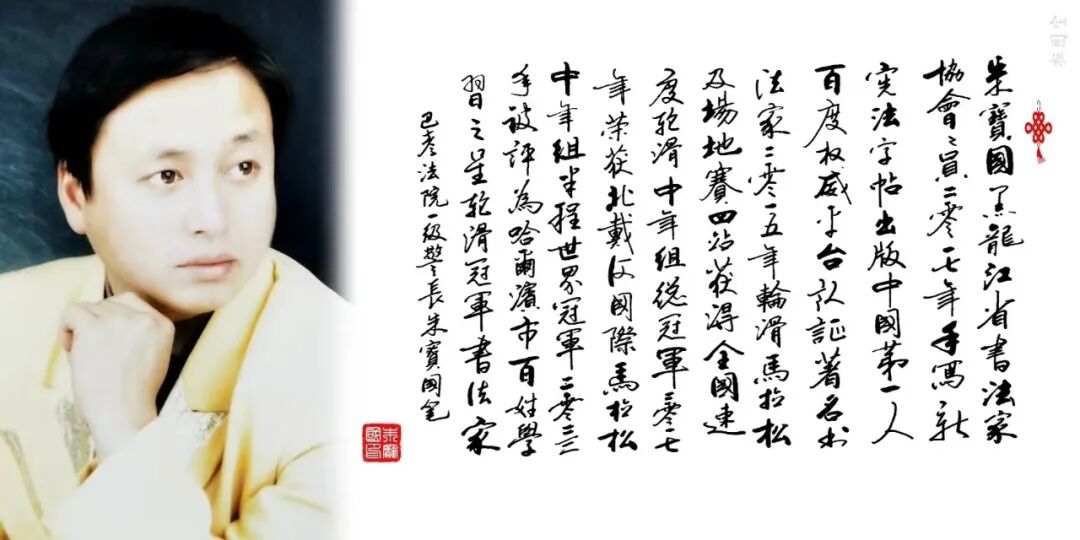 朱寶國黑龍江省書法家
協會會員二零一七年手寫新
憲法字帖出版中國第一人
百度权威平台认証著名书
法家二零一五年輪滑馬拉松
及場地賽四站获得全國速
度轮滑中年组总冠軍二零一七
年荣获北戴河國際馬拉松
中年組半程世界冠軍二零二三
年被評為哈爾濱市百姓學
習之星轮滑冠軍書法家
巴彦法院一级警长朱寶國笔
朱寶國印